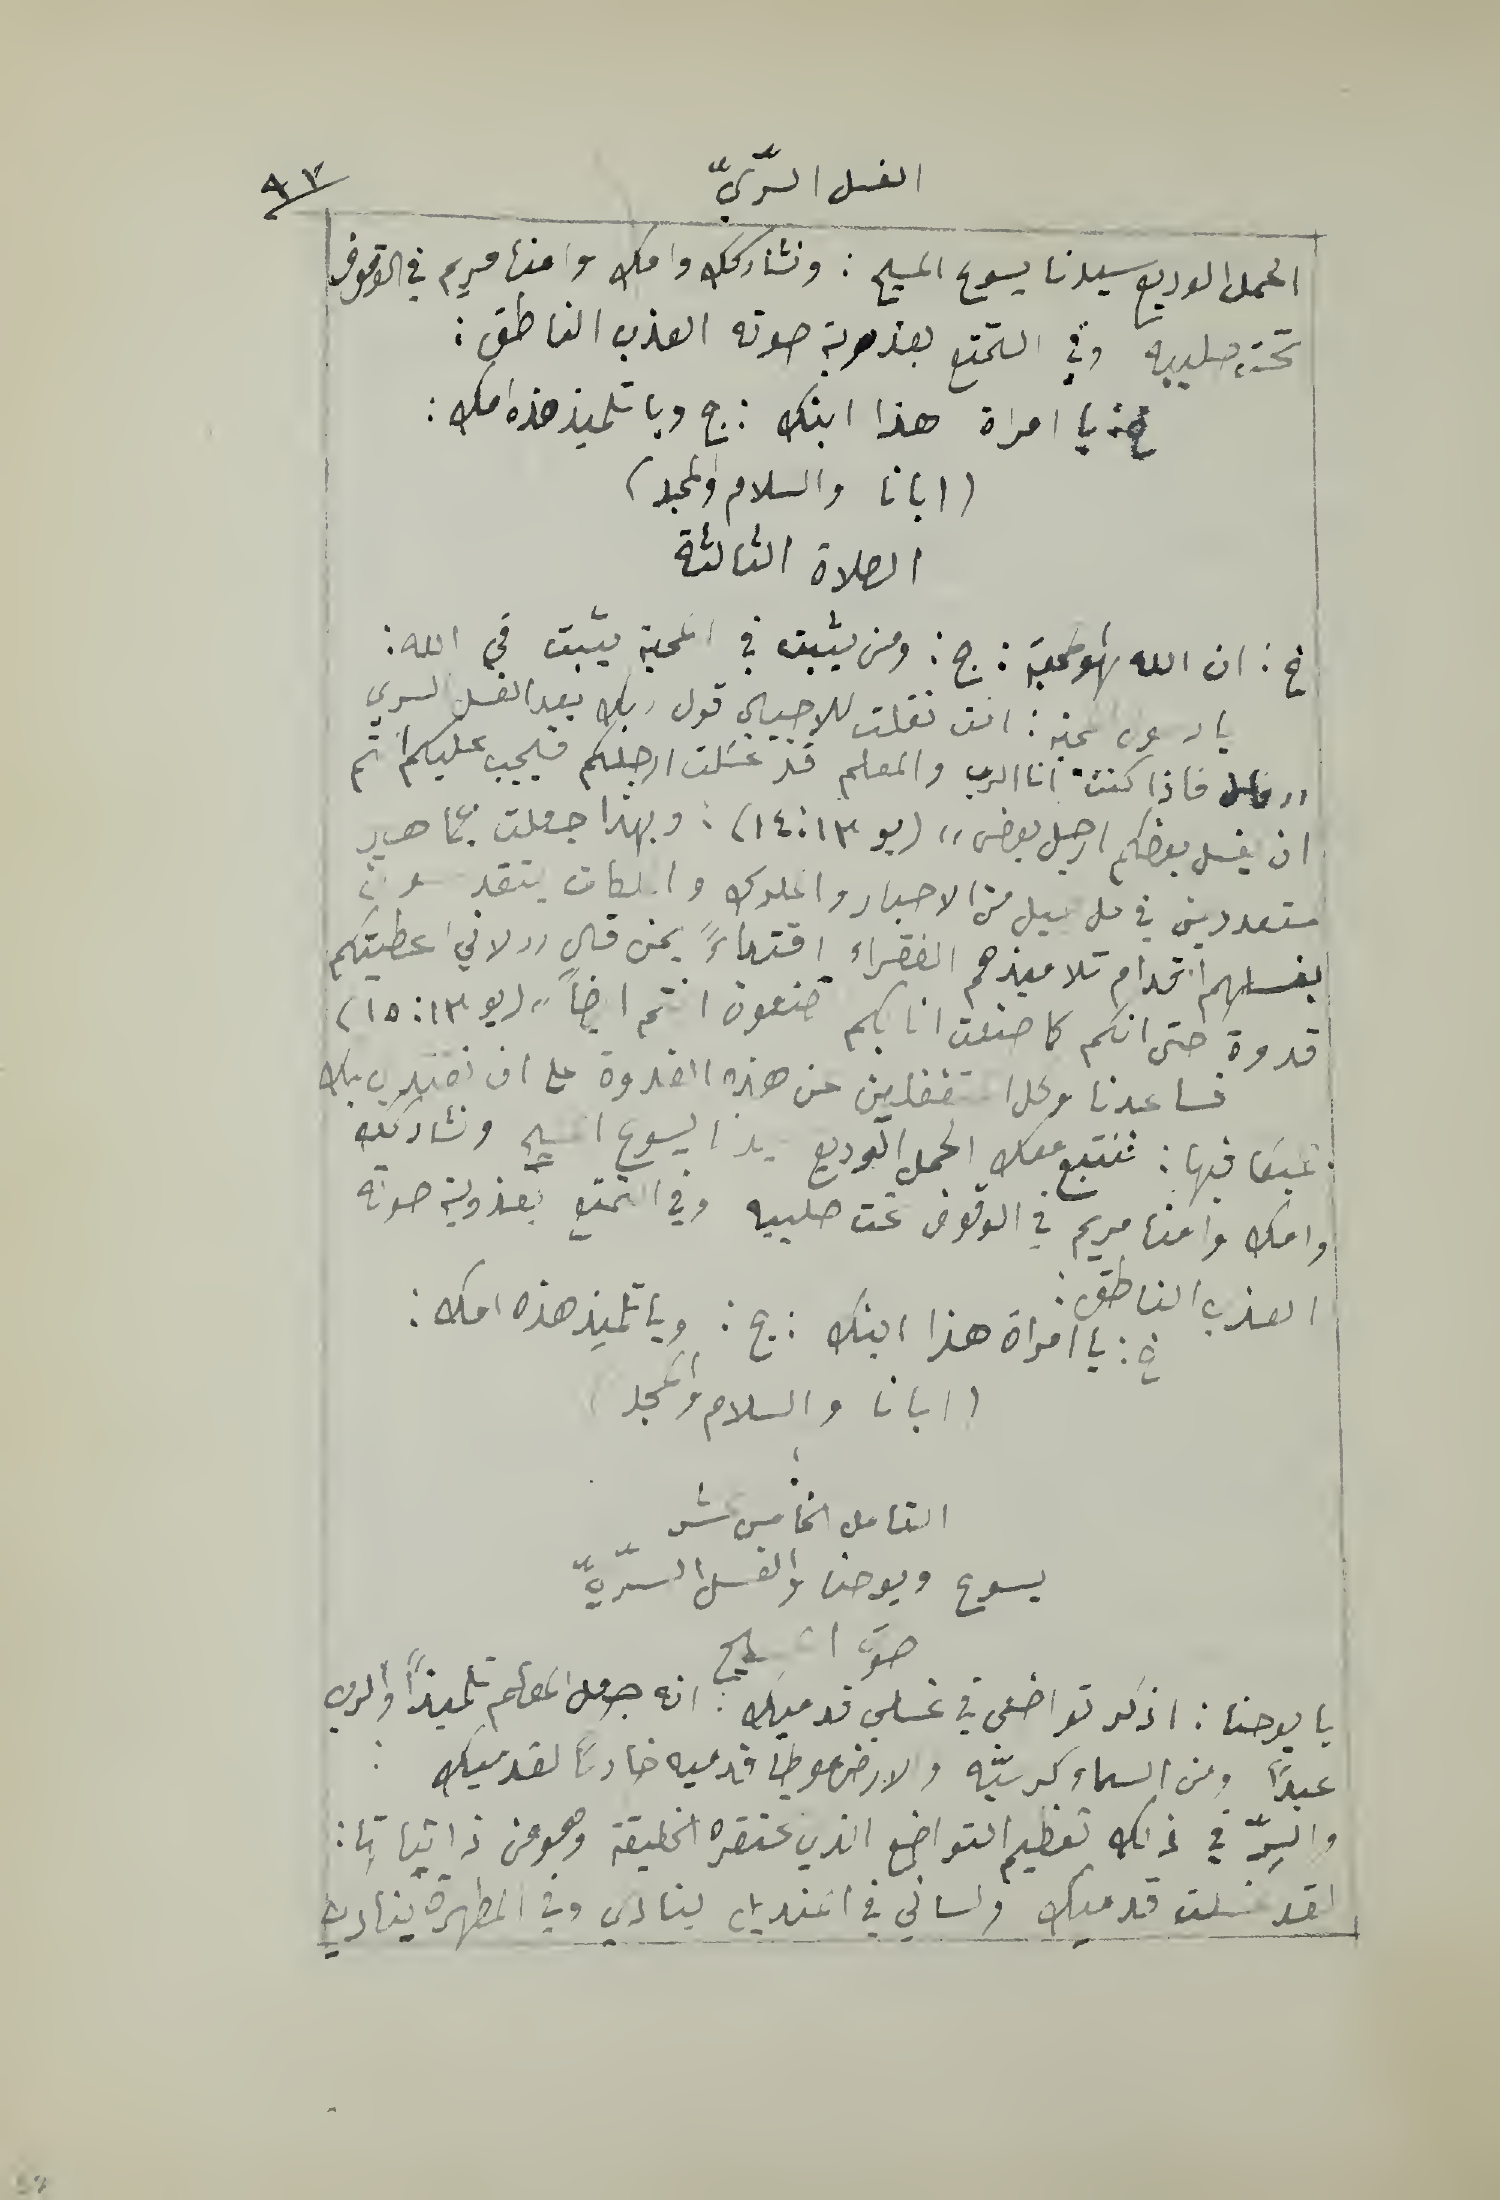 الغسل السّرّيّ ٩٧
الحمل الوديع سيدنا يسوع المسيح : ونشاركك وامك وامنا مريم في الوقوف
تحت صليبه وفي التمتع بعذوبة صوته العذب الناطق :
خ : يا امراة هذا ابنك : ج ويا تلميذ هذه امك :
(ابانا والسلام والمجد)
الصلاة الثالثة
خ : ان الله لهو محبة : ج : ومن يثبت في المحبة يثبت في الله :
يا رسول المحبة : انت نقلت للاجيال قول ربك بعد الغسل السري
,, فاذا كنت انا الرب والمعلم قد غسلت ارجلكم فيجب عليكم انتم
ان يغسل بعضكم ارجل بعض ,, (يو ١٣:١٤) : وبهذا جعلت جماهير
متعددين في كل جيل من الاحبار والملوك والملكات يتقدسون
بغسلهم اقدام تلاميذهم الفقراء اقتداءً بمن قال ,, لاني اعطيتكم
قدوة حتى انكم كما صنعت انا بكم تصنعون انتم ايضاً ,, (يو ١٣:١٥)
فساعدنا وكل المتغفلين عن هذه القدوة على ان نقتدي بك
جميعًا فيها : فنتبع معك الحمل الوديع يسوع المسيح ونشاركك
وامك وامنا مريم في الوقوف تحت صليبه وفي التمتع بعذوبة صوته
العذب الناطق :
خ : يا امراة هذا ابنك : ج : ويا تلميذ هذه امك :
(ابانا والسلام والمجد)
التامل الخامس عشر
يسوع ويوحنا والغسل السّرّيّ
صوت المسيح
يا يوحنا : اذكر تواضعي في غسلي قدميك : انه جعل المعلم تلميذاً والرب
عبدًا ومن السماء كرسيّه والارض موطئ قدميه خادمًا لقدميك :
والسِرّ في ذلك تعظيم التواضع الذي تحتقره الخليقة وهو من ذاتياتها :
لقد غسلت قدميك ولساني في المنديل ينادي وفي المطهرة ينادي